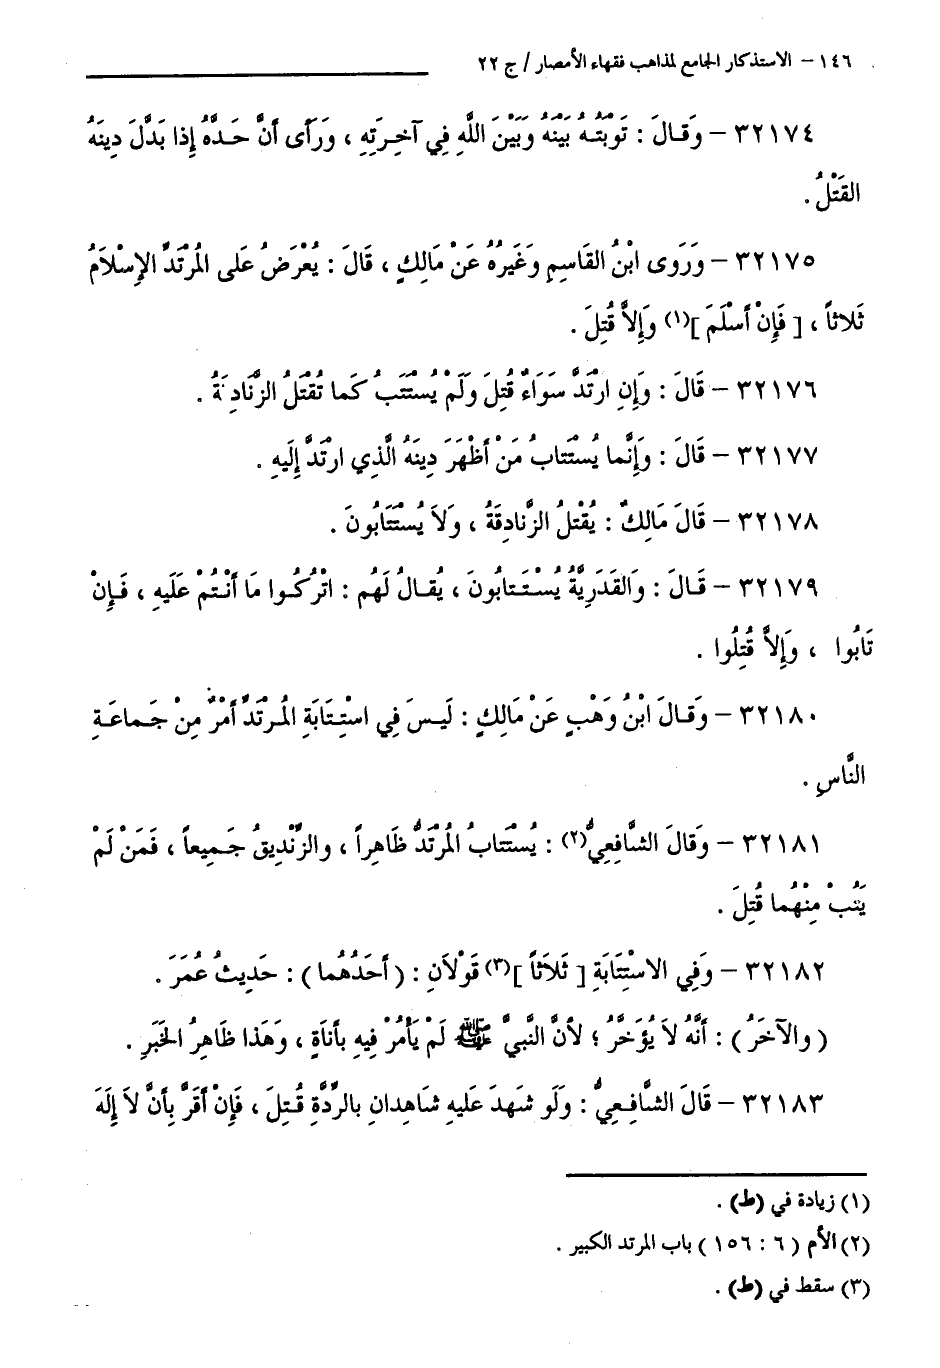 ١٤٦ – الاستذكار الجامع لمذاهب فقهاء الأمصار / ج ٢٢
٣٢١٧٤ – وَقَالَ : تَوْبَتُهُ بَيْنَهُ وَبَيْنَ اللَّهِ فِي آخِرَتِهِ ، وَرَأَى أَنَّ حَدَّهُ إِذا بَدَّلَ دِينَهُ
القَتْلُ .
٣٢١٧٥ – وَرَوى ابْنُ القَاسِمِ وَغَيرُهُ عَنْ مَالِكٍ ، قَالَ : يُعْرَضُ عَلى المُرْتَدِّ الإِسْلاَمُ
ثَلاثاً ، [ فَإِنْ أَسْلَمَ ](١) وَإِلاَّ قُتِلَ .
٣٢١٧٦ – قَالَ : وَإِنِ ارْتَدَّ سَوَاءٌ قُتِلَ وَلَمْ يُسْتَتَبْ كَما تُقْتَلُ الزَّنَادِقَةُ .
٣٢١٧٧ – قَالَ : وَإِنَّما يُسْتَتَابُ مَنْ أَظْهَرَ دِينَهُ الَّذِي ارْتَدَّ إِلَيهِ .
٣٢١٧٨ – قَالَ مَالِكٌ : يُقْتلُ الزَّنادِقَةُ ، وَلاَ يُسْتَتَابُونَ .
٣٢١٧٩ – قَـالَ : وَالقَدَرِيَّةُ يُسْتَتابُونَ ، يُقـالُ لَهُم : اتْرُكُـوا مَا أَنْتُمْ عَلَيهِ ، فَـإِنْ
تَابُوا ، وَإِلاَّ قُتِلُوا .
٣٢١٨٠ – وَقَـالَ ابْنُ وَهْبٍ عَنْ مَالِكٍ : لَيسَ فِي اسْتِتَابَةِ المُرْتَدِّ أَمْرٌ مِنْ جَـماعَـةِ
النَّاسِ .
٣٢١٨١ – وَقَالَ الشَّافِعِيُّ(٢) : يُسْتَتابُ المُرْتَدُّ ظَاهِراً ، والزِّنْدِيقُ جَـمِيعاً ، فَمَنْ لَمْ
يَتُبْ مِنْهُما قُتِلَ .
٣٢١٨٢ – وَفِي الاسْتِتَابَةِ [ ثَلاَثاً ](٣) قَوْلاَنِ : ( أَحَدُهُما ) : حَدِيثُ عُمَرَ .
( والآخَرُ ) : أَنَّهُ لاَ يُؤَخَّرُ ؛ لأَنَّ النَّبِيَّ ﷺ لَمْ يَأْمُرْ فِيهِ بأَناةٍ ، وَهَذا ظَاهِرُ الخَبَرِ .
٣٢١٨٣ – قَالَ الشَّافِـعِيُّ : وَلَو شَهِدَ عَلَيهِ شَاهِدانِ بالرِّدَّةِ قُـتِلَ ، فَإِنْ أَقَرَّ بِأَنَّ لاَ إِلَهَ
(١) زيادة في (ط) .
(٢) الأم ( ٦ : ١٥٦ ) باب المرتد الكبير .
(٣) سقط في (ط) .